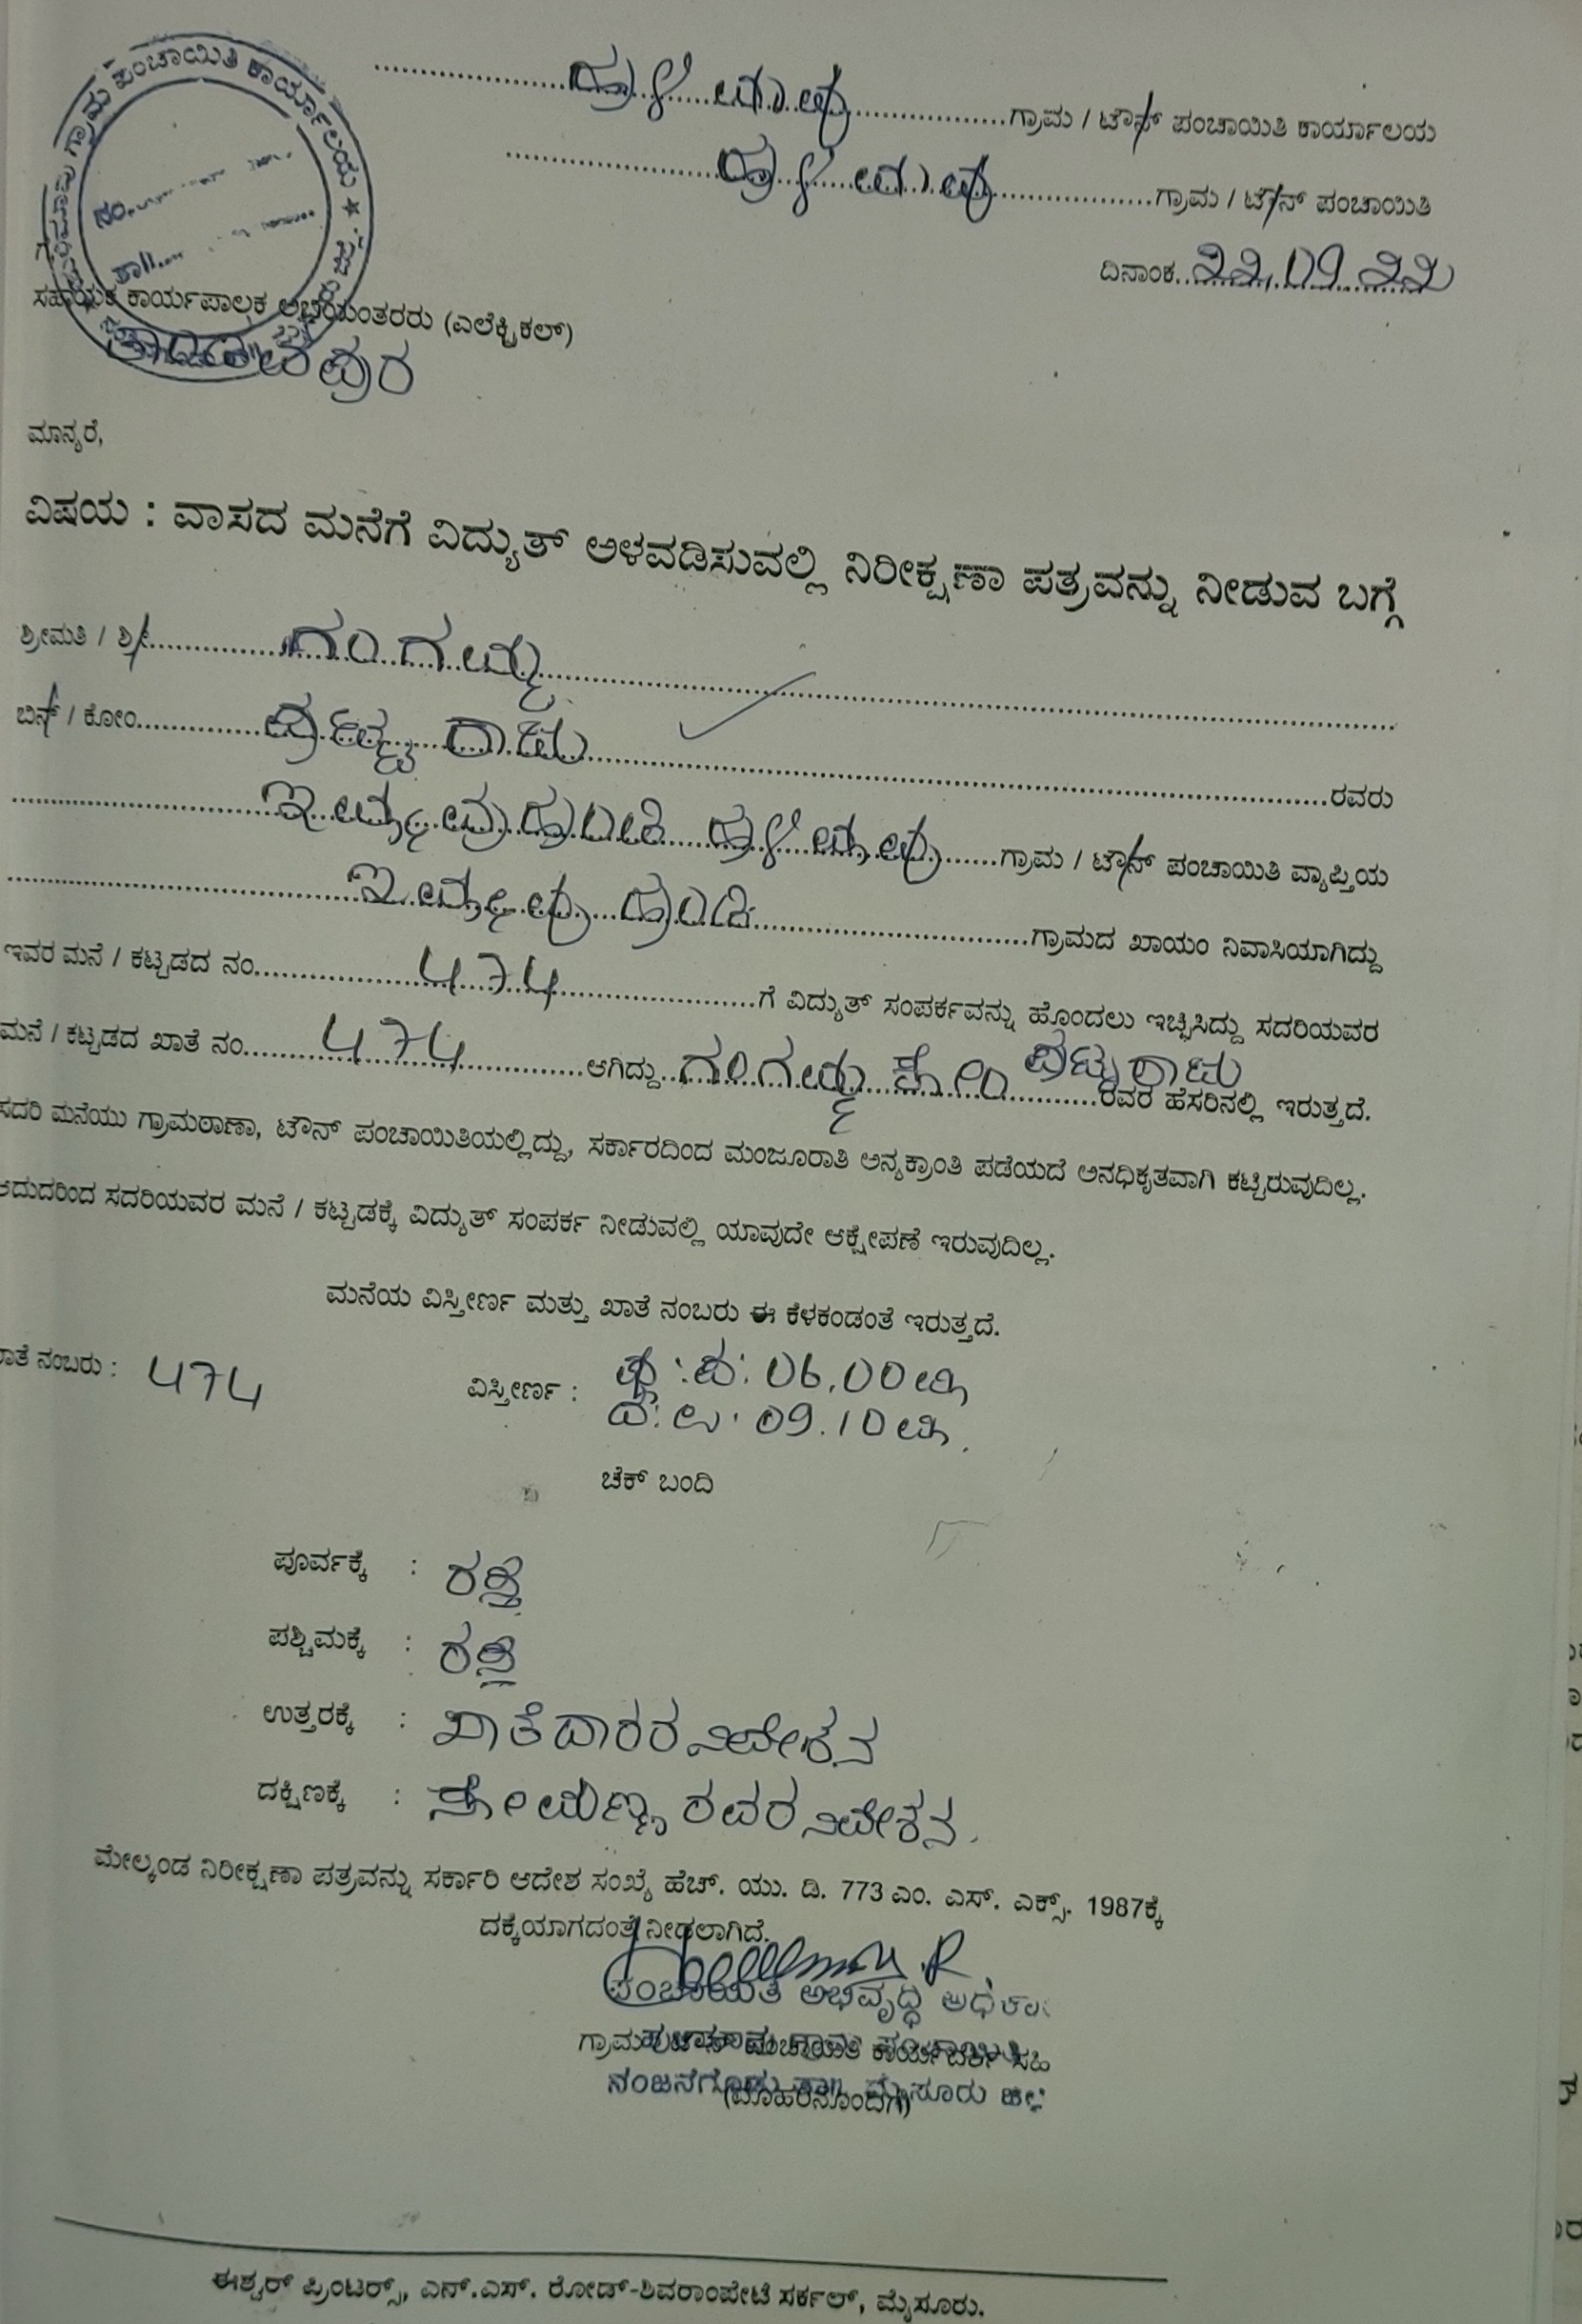 ಗ್ರಾಮ ಪಂಚಾಯಿತಿ ಕಾರ್ಯಾಲಯ ★
ನಂ.
ತಾ॥
ಹುಳಿಮಾವು ಗ್ರಾಮ / ಟೌನ್ ಪಂಚಾಯಿತಿ ಕಾರ್ಯಾಲಯ
ಹುಳಿಮಾವು ಗ್ರಾಮ / ಟೌನ್ ಪಂಚಾಯಿತಿ
ದಿನಾಂಕ 22.09.22
ಸಹಾಯಕ ಕಾರ್ಯಪಾಲಕ ಅಭಿಯಂತರರು (ಎಲೆಕ್ಟ್ರಿಕಲ್)
ತಾಂಡವಪುರ
ಮಾನ್ಯರೆ,
ವಿಷಯ : ವಾಸದ ಮನೆಗೆ ವಿದ್ಯುತ್ ಅಳವಡಿಸುವಲ್ಲಿ ನಿರೀಕ್ಷಣಾ ಪತ್ರವನ್ನು ನೀಡುವ ಬಗ್ಗೆ
ಶ್ರೀಮತಿ / ಶ್ರೀ ಗಂಗಮ್ಮ
ಬಿನ್ / ಕೋಂ ಪುಟ್ಟರಾಜು ರವರು
ಇಮ್ಮಾವುಹುಂಡಿ ಹುಳಿಮಾವು ಗ್ರಾಮ / ಟೌನ್ ಪಂಚಾಯಿತಿ ವ್ಯಾಪ್ತಿಯ
ಇಮ್ಮಾವು ಹುಂಡಿ ಗ್ರಾಮದ ಖಾಯಂ ನಿವಾಸಿಯಾಗಿದ್ದು
ಇವರ ಮನೆ / ಕಟ್ಟಡದ ನಂ 474 ಗೆ ವಿದ್ಯುತ್ ಸಂಪರ್ಕವನ್ನು ಹೊಂದಲು ಇಚ್ಛಿಸಿದ್ದು ಸದರಿಯವರ
ಮನೆ / ಕಟ್ಟಡದ ಖಾತೆ ನಂ 474 ಆಗಿದ್ದು ಗಂಗಮ್ಮ ಕೋಂ ಪುಟ್ಟರಾಜು ರವರ ಹೆಸರಿನಲ್ಲಿ ಇರುತ್ತದೆ.
ಸದರಿ ಮನೆಯು ಗ್ರಾಮಠಾಣಾ, ಟೌನ್ ಪಂಚಾಯಿತಿಯಲ್ಲಿದ್ದು, ಸರ್ಕಾರದಿಂದ ಮಂಜೂರಾತಿ ಅನ್ಯಕ್ರಾಂತಿ ಪಡೆಯದೆ ಅನಧಿಕೃತವಾಗಿ ಕಟ್ಟಿರುವುದಿಲ್ಲ.
ಆದುದರಿಂದ ಸದರಿಯವರ ಮನೆ / ಕಟ್ಟಡಕ್ಕೆ ವಿದ್ಯುತ್ ಸಂಪರ್ಕ ನೀಡುವಲ್ಲಿ ಯಾವುದೇ ಆಕ್ಷೇಪಣೆ ಇರುವುದಿಲ್ಲ.
ಮನೆಯ ವಿಸ್ತೀರ್ಣ ಮತ್ತು ಖಾತೆ ನಂಬರು ಈ ಕೆಳಕಂಡಂತೆ ಇರುತ್ತದೆ.
ಖಾತೆ ನಂಬರು : 474 ವಿಸ್ತೀರ್ಣ : ಪೂ:ಪ: 06.00ಮೀ
ಉ: ದ: 09.10ಮೀ.
ಚೆಕ್ ಬಂದಿ
ಪೂರ್ವಕ್ಕೆ : ರಸ್ತೆ
ಪಶ್ಚಿಮಕ್ಕೆ : ರಸ್ತೆ
ಉತ್ತರಕ್ಕೆ : ಖಾತೆದಾರರ ನಿವೇಶನ
ದಕ್ಷಿಣಕ್ಕೆ : ಸೋಮಣ್ಣ ರವರ ನಿವೇಶನ.
ಮೇಲ್ಕಂಡ ನಿರೀಕ್ಷಣಾ ಪತ್ರವನ್ನು ಸರ್ಕಾರಿ ಆದೇಶ ಸಂಖ್ಯೆ ಹೆಚ್. ಯು. ಡಿ. 773 ಎಂ. ಎಸ್. ಎಕ್ಸ್. 1987ಕ್ಕೆ
ದಕ್ಕೆಯಾಗದಂತೆ ನೀಡಲಾಗಿದೆ.
ಪಂಚಾಯಿತಿ ಅಭಿವೃದ್ಧಿ ಅಧಿಕಾರಿ
ಗ್ರಾಮ ಪಂಚಾಯಿತಿ ಕಾರ್ಯದರ್ಶಿ ಸಹಿ
ನಂಜನಗೂಡು ತಾ॥ ಮೈಸೂರು ಜಿಲ್ಲೆ
(ಮೊಹರಿನೊಂದಿಗೆ)
ಈಶ್ವರ್ ಪ್ರಿಂಟರ್ಸ್, ಎನ್.ಎಸ್. ರೋಡ್-ಶಿವರಾಂಪೇಟೆ ಸರ್ಕಲ್, ಮೈಸೂರು.